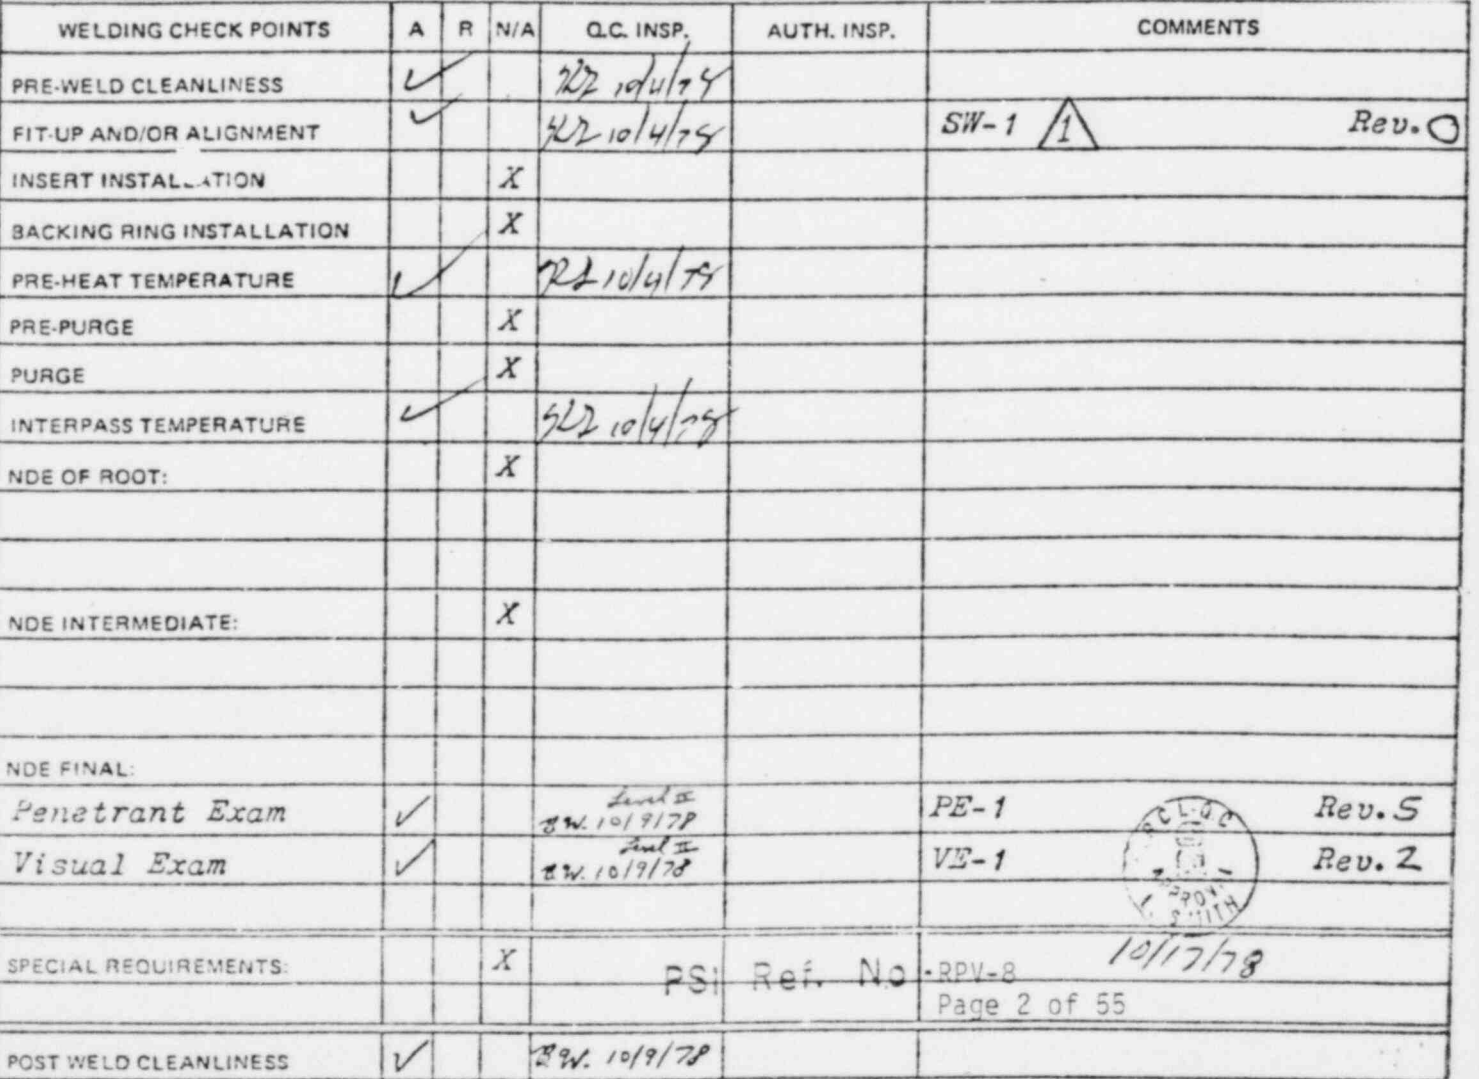 WELDING CHECK POINTS A R N/A Q.C. INSP. AUTH. INSP. COMMENTS
PRE-WELD CLEANLINESS ✓ 10/4/78
FIT-UP AND/OR ALIGNMENT ✓ 10/4/78 SW-1 1 Rev. 0
INSERT INSTALLATION X
BACKING RING INSTALLATION X
PRE-HEAT TEMPERATURE ✓ 10/4/78
PRE-PURGE X
PURGE X
INTERPASS TEMPERATURE ✓ 10/4/78
NDE OF ROOT: X
NDE INTERMEDIATE: X
NDE FINAL:
Level II
Penetrant Exam ✓ B.W. 10/9/78 PE-1 Rev. 5
Level II
Visual Exam ✓ B.W. 10/9/78 VE-1 Rev. 2
SMITH
10/17/78
SPECIAL REQUIREMENTS: X PSI Ref. No. RPV-8
Page 2 of 55
POST WELD CLEANLINESS ✓ B.W. 10/9/78